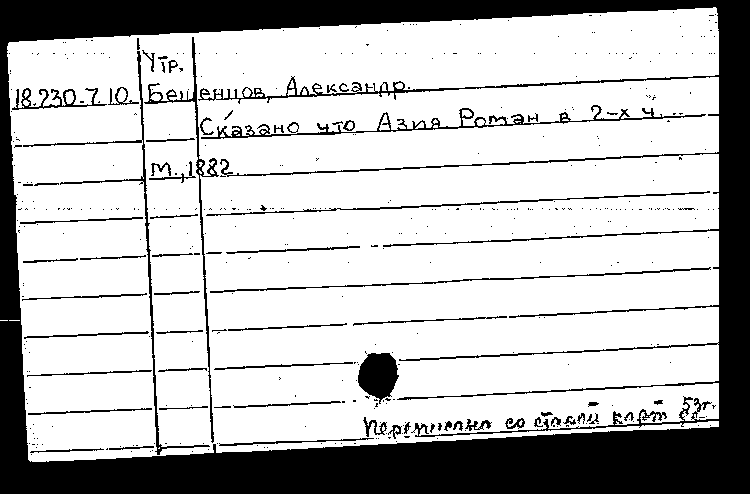 Утр.
18.230.7.10. Бешенцов, Александр.
Сказано что Азия Роман в 2-х ч.
М., 1882.
Переписано со старой карт 53г.